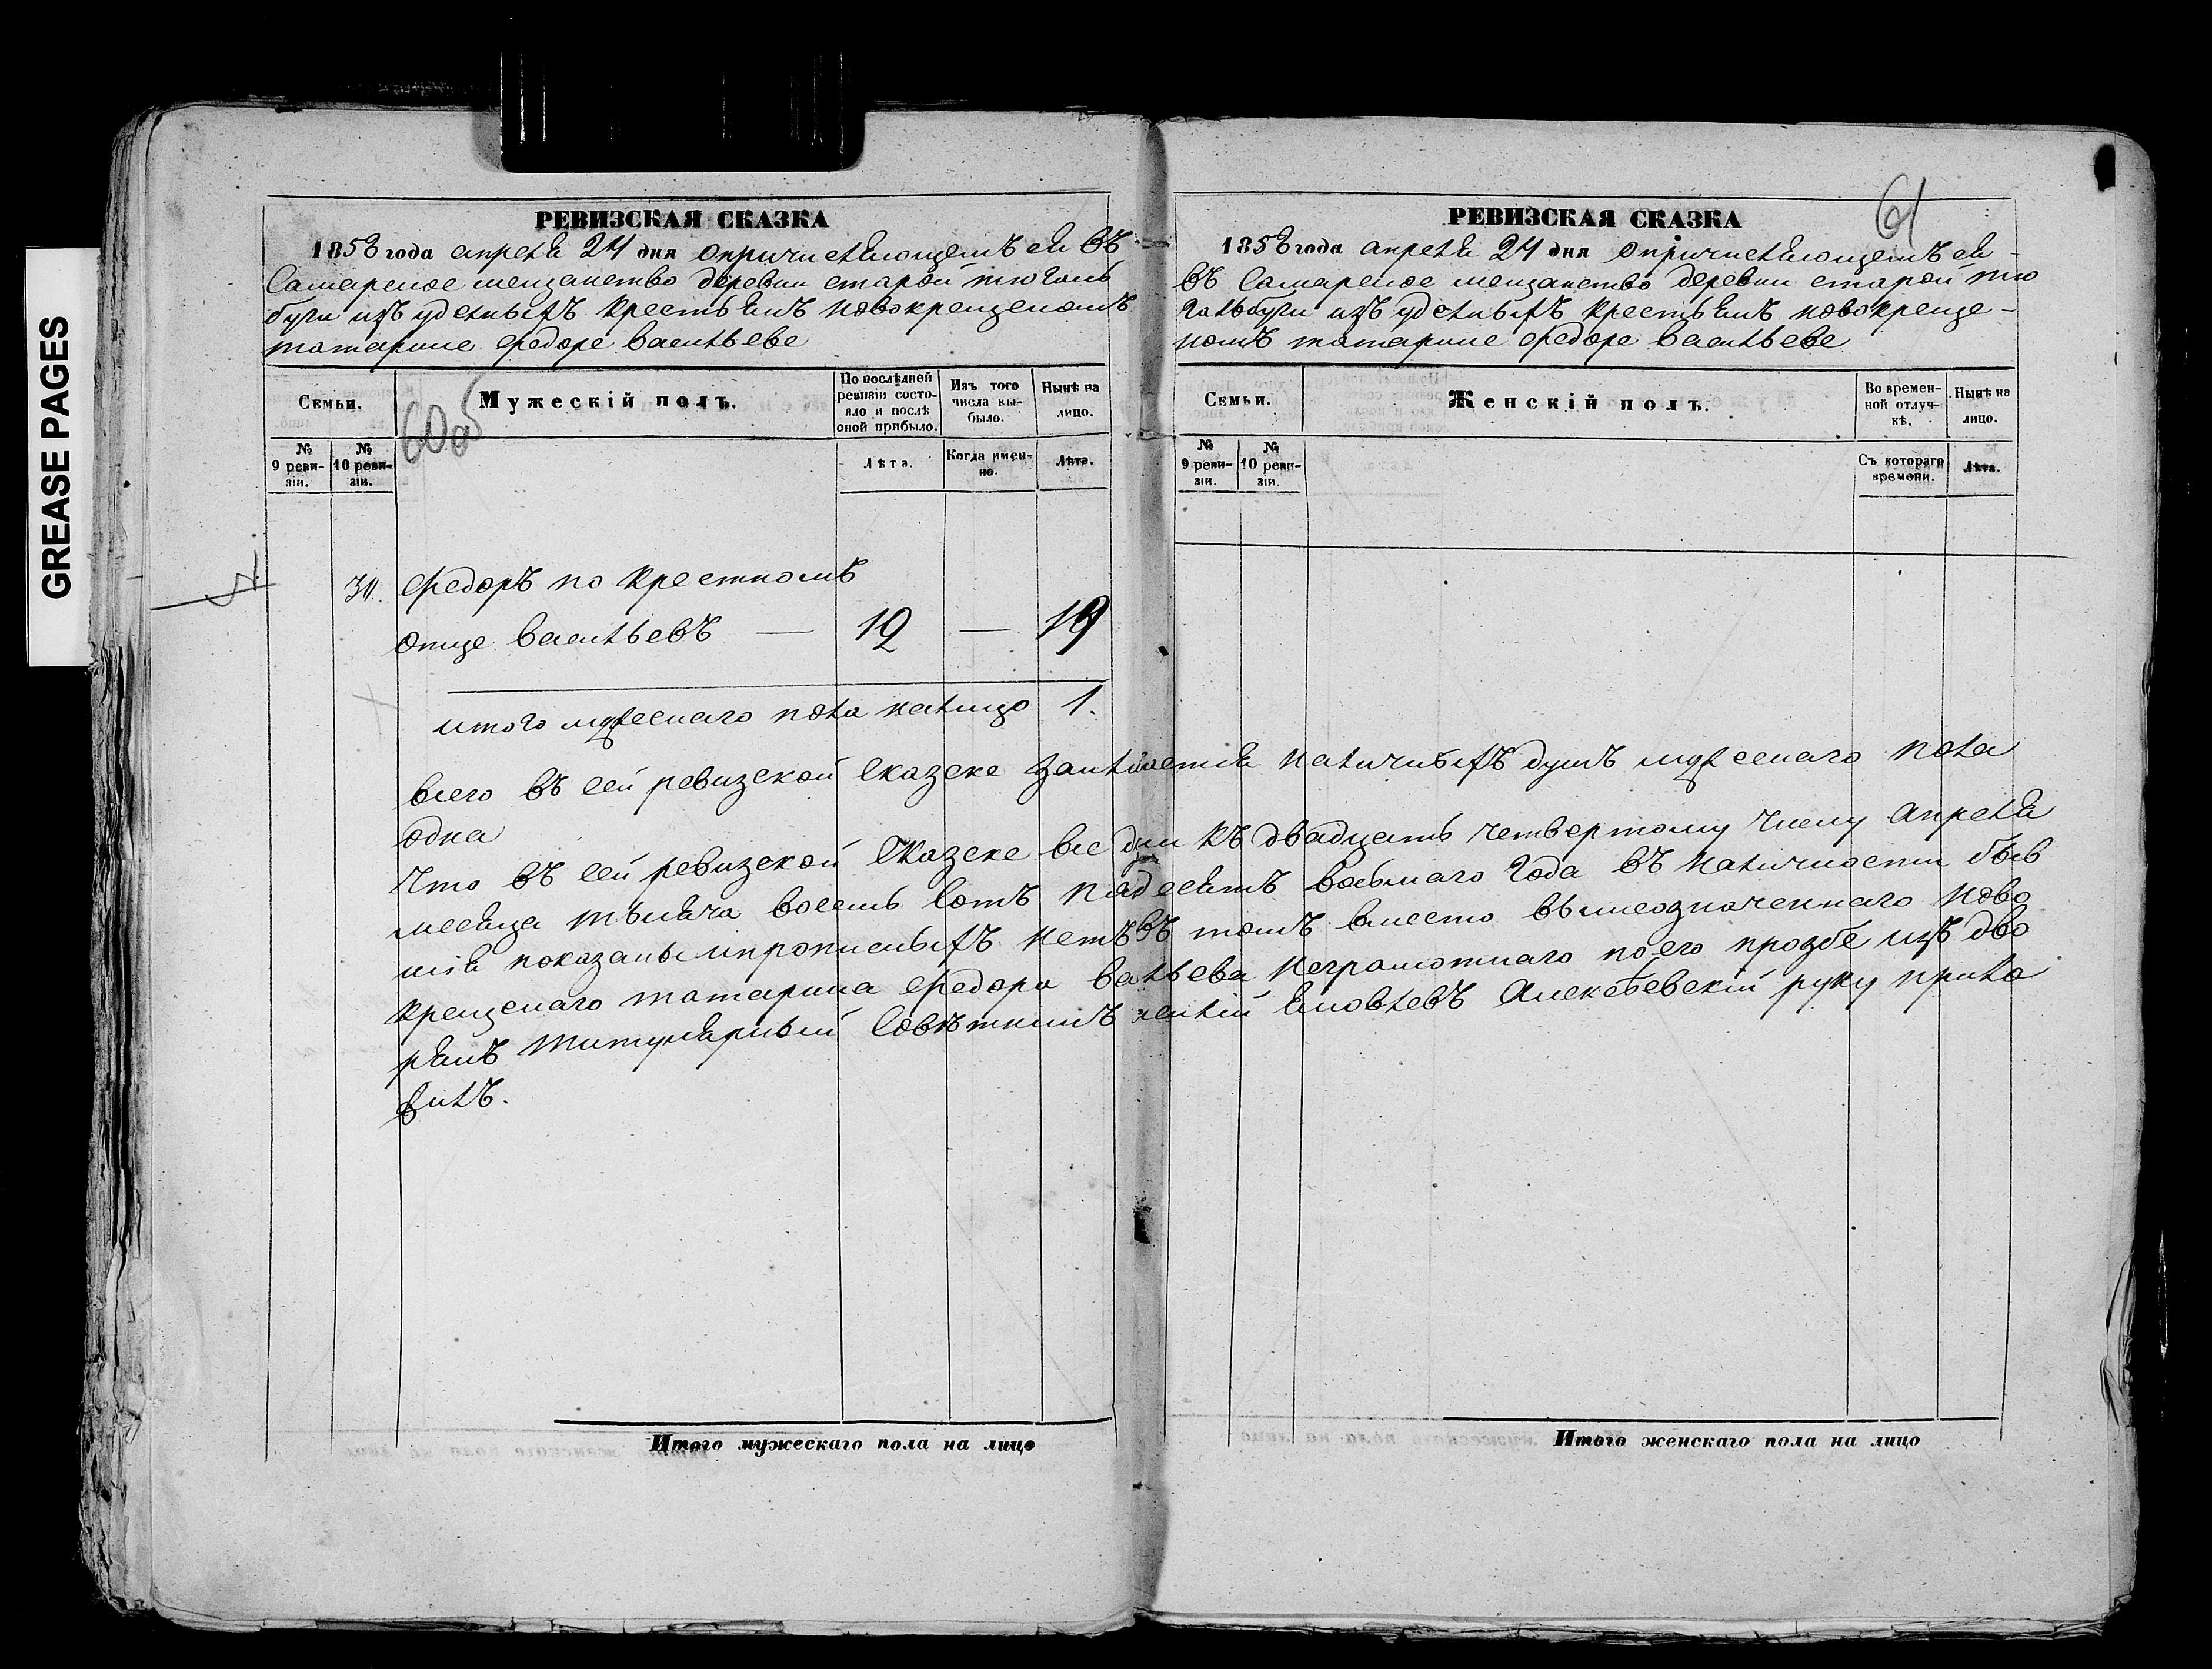 GREASE PAGES
РЕВИЗСКАЯ СКАЗКА
1858 года апреля 24 дня опричисляющемъся въ
Самарское мещанство деревни старой тюгаль
буги изъ удельныхъ крестьянъ новокрещеномъ
татарине Федоре Васильеве
Семьи.
Мужескій полъ.
По послѣдней ревизіи состояло и послѣ оной прибыло.
Изъ того числа выбыло.
Нынѣ на лицо.
60об
№ 9 ревизіи.
№ 10 ревизіи.
Лѣта.
Когда именно.
Лѣта.
Федоръ по крестномъ
отце Васильевъ — 19 — 19
итого мужескаго пола налицо 1.
РЕВИЗСКАЯ СКАЗКА
61
1858 года апреля 24 дня опричисляющемъся
въ Самарское мещанство деревни старой тю
гальбуги изъ удельныхъ крестьянъ новокреще-
номъ татарине Федоре Васильеве
Семьи.
Женскій полъ.
Во временной отлучкѣ.
Нынѣ на лицо.
№ 9 ревизіи.
№ 10 ревизіи.
Съ котораго времени.
Лѣта.
всего въ сей ревизской сказке заключается наличныхъ душъ мужескаго пола
одна
Что въ сей ревизской сказке все къ двадцать четвертому числу апреля
месяца тысяча восемь сотъ восьмаго года въ наличности быв
шія показаны прописныхъ нетъ въ томъ вместо вышеозначеннаго ново
крещенаго татарина Федора Васльева неграмотнаго по его прозбе изъ дво
рянъ титулярный Совѣтникъ Яковлевъ Алексеевскій руку прило
жилъ.
Итого мужескаго пола на лицо
Итого женскаго пола на лицо